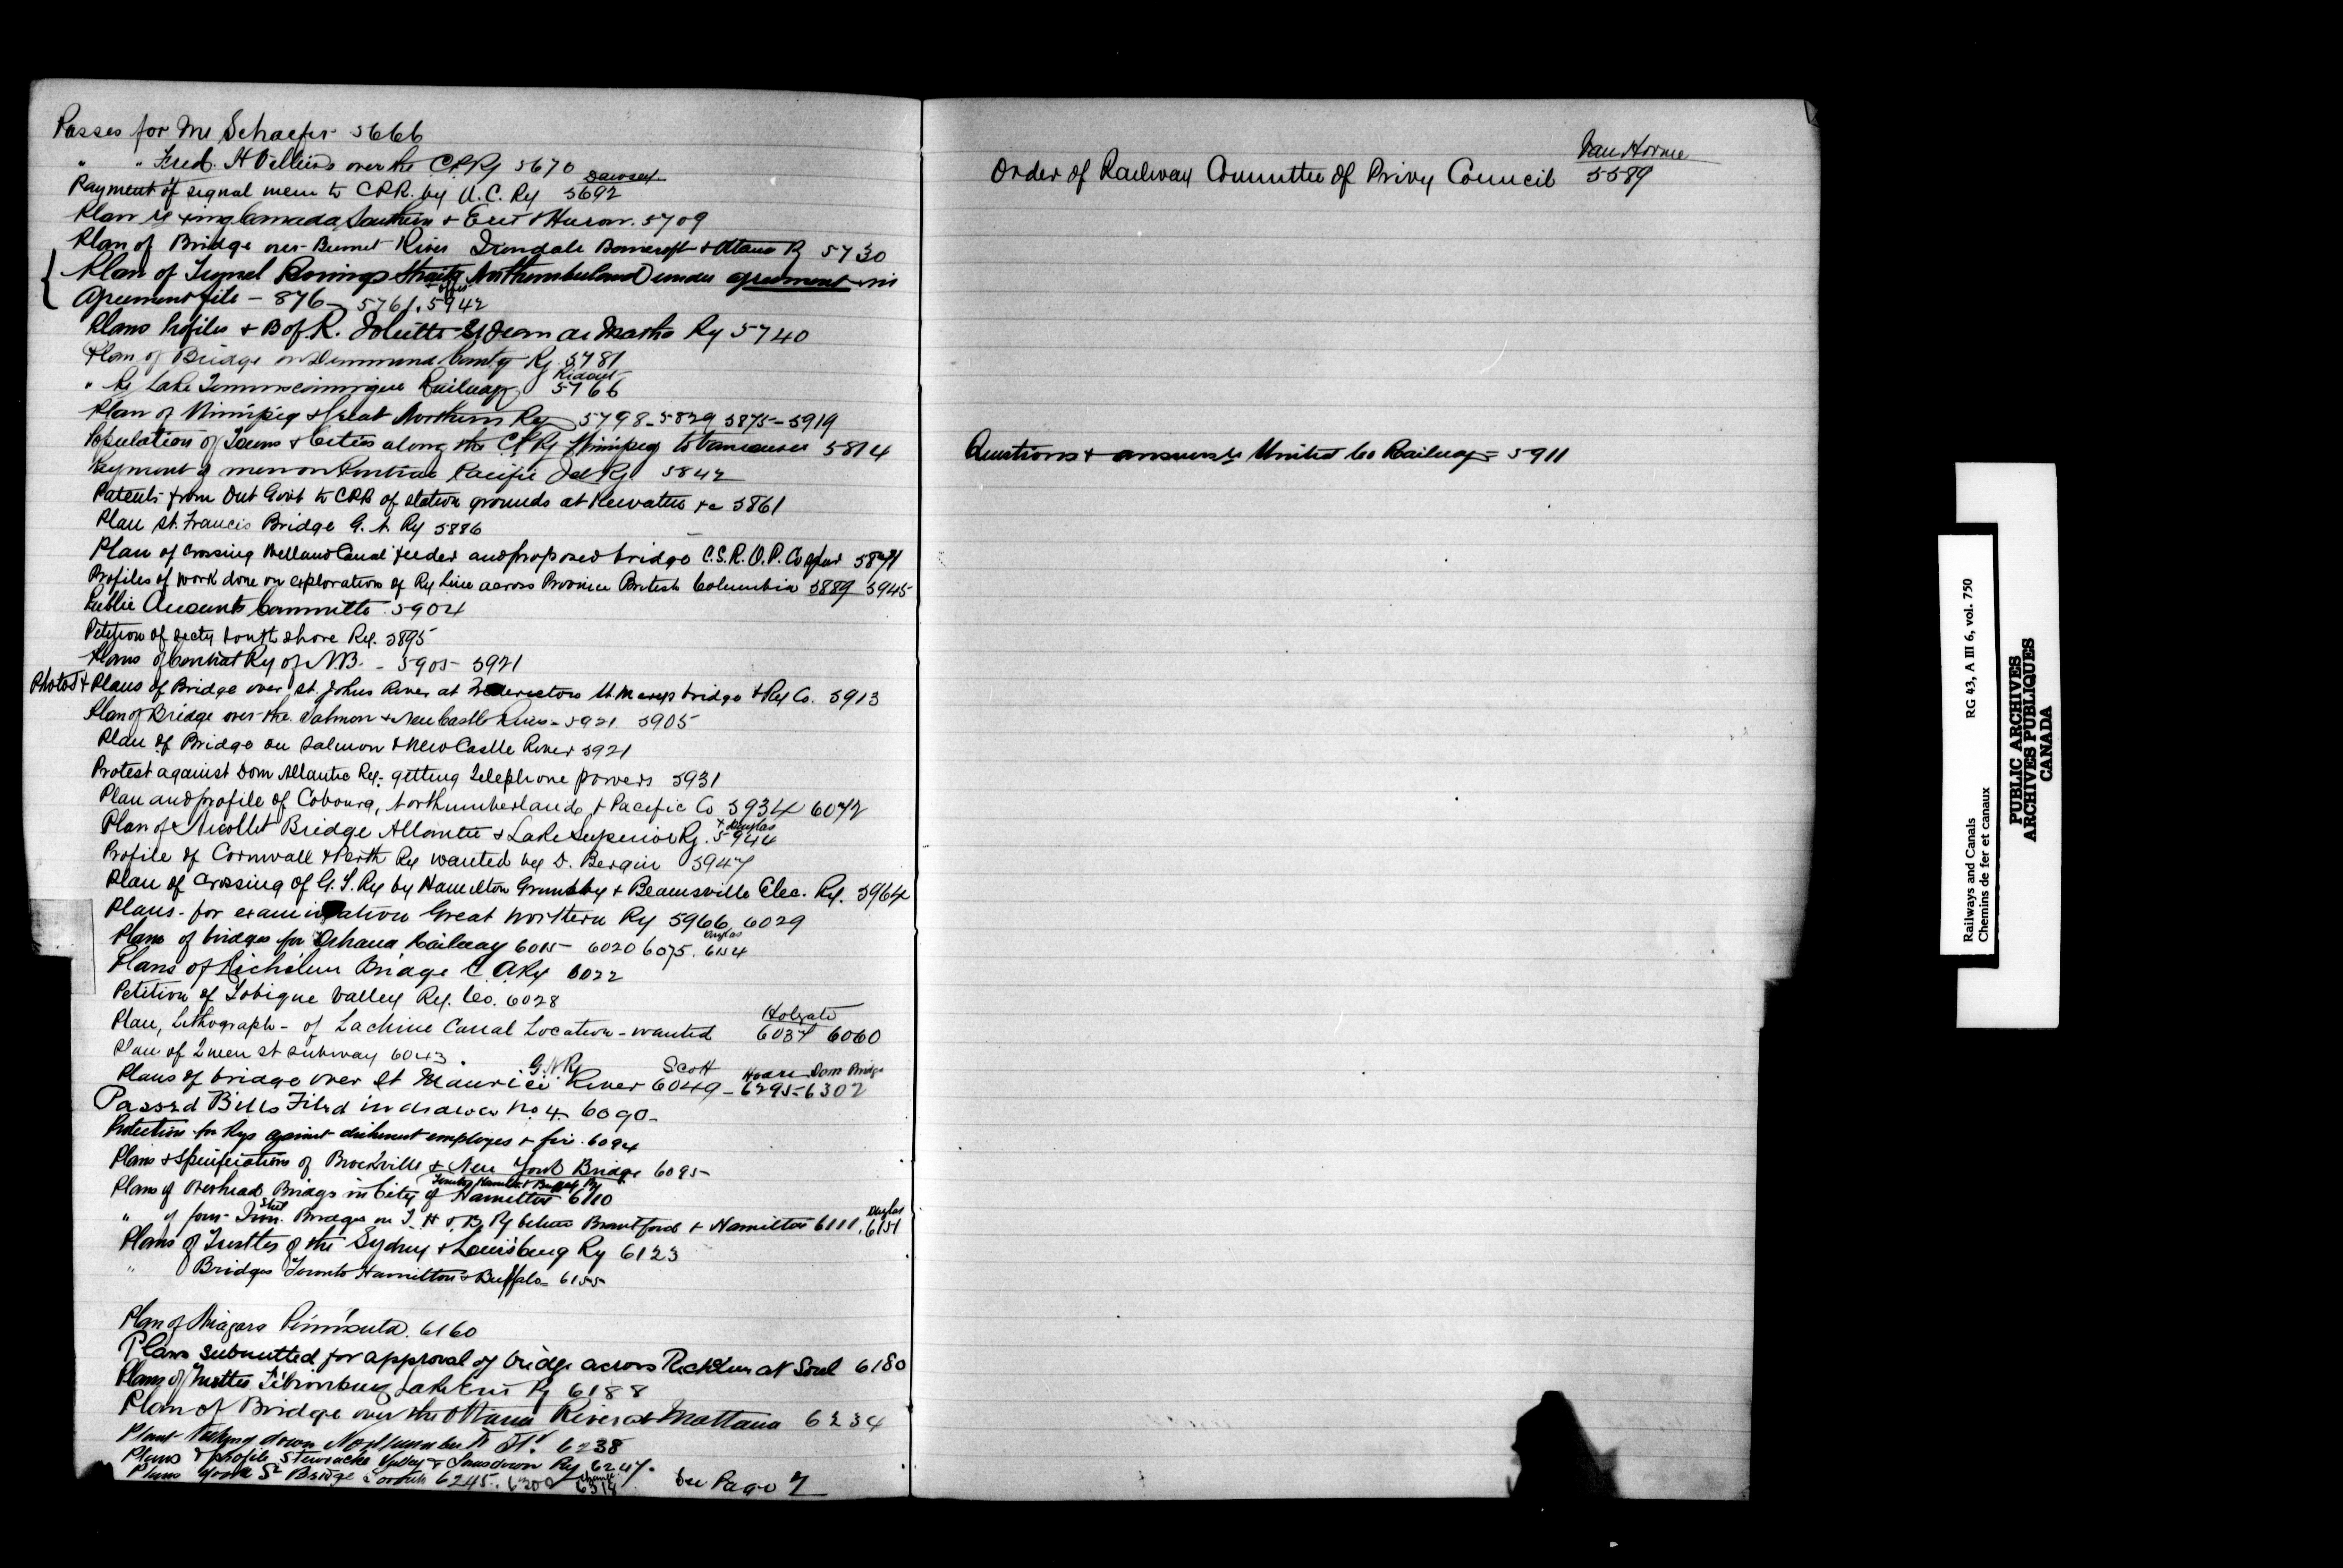 Passes for Mr Schaefer 5666
" " Fred. H over the C.P.Ry 5670
Dawson
Payment of signal men to CPR. by U.C. Ry 5692
Plan re xing Canada Southern + Erie & Huron. 5709
Plan of Bridge over Burnt River Irondale Bancroft + Ottawa Ry 5730
Plan of Tunnel Borings Straits Northumberland under agreement in
Agreement file - 876 5761. 5942
Plans Profiles + B of R. Joliette St Jean de Matha Ry 5740
Plan of Bridge on Drummond County Ry. 5781
Ridout
" Re Lake Temmiscamingue Railway 5766
Plan of Winnipeg & Great Northern Ry 5798 - 5829 5875 - 5919
Population of Towns + Cities along the C.P.Ry Winnipeg to Vancouver 5814
Payment of men on Pontiac Pacific Jct Ry 5842
Patents from Ont Govt to CPR of station grounds at Keewatin +c 5861
Plan St. Francis Bridge G. T. Ry 5886
Plan of Crossing Welland Canal feeder and proposed bridge C.S.R. O.P. Co 5871
Profiles of work done on exploration of Ry Line across Province British Columbia 5889 5945
Public Accounts Committee. 5904
Petition of Secty South Shore Ry. 5895
Plans of Central Ry of N.B. - 5905 - 5921
Photos + Plans of Bridge over St. Johns River at Fredericton St. Marys bridge + Ry Co. 5913
Plan of Bridge over the Salmon + New Castle River - 5921 5905
Plan of Bridge on Salmon + New Castle River 5921
Protest against Dom Atlantic Ry. getting Telephone powers 5931
Plan and profile of Cobourg, Northumberland, + Pacific Co 5934 6072
+ Douglas
Plan of Nicollet Bridge Atlantic & Lake Superior Ry. 5944
Profile of Cornwall & Perth Ry wanted by D. Bergin 5947
Plan of Crossing of G.T. Ry by Hamilton Grimsby + Beamsville Elec. Ry. 5964
Plans - for examination Great Northern Ry 5966 6029
Douglas
Plans of bridges for Railway 6015 - 6020 6075. 6154
Plans of Richelieu Bridge C. A. Ry 6022
Petition of Tobique Valley Ry. Co. 6028
Holgate
Plan, Lithograph - of Lachine Canal Location - wanted 6037 6060
Plan of Queen St subway 6043.
G.N.Ry Scott Hoare Dom Bridge
Plans of bridge over St Maurice River 6049 - 6295 - 6302
Passed Bills Filed in drawer No 4. 6090 -
Protection for Rys against dishonest employes + fire. 6094
Plans + Specifications of Brockville & New York Bridge 6095
Toronto Hamilton & Buffalo Ry
Plans of Overhead Bridges in City of Hamilton 6110
Steel Douglas
" of four Iron. Bridges on T. H. & B. Ry between Brantford + Hamilton 6111, 6151
Plans of Trestles of the Sydney & Louisburg Ry 6123
" Bridges Toronto Hamilton & Buffalo - 6155
Plan of Niagara Peninsula. 6160
Plans submitted for approval of bridge across Richelieu at Sorel 6180
Plans of Trestles Tilsonburg Lake Erie Ry 6188
Plan of Bridge over the Ottawa River at Mattawa 6234
Plant Taking down 6238
Plans & profile Stewiacke Valley & Lansdown Ry 6247.
Plans York St Bridge Toronto 6245. 6308 6318
See Page 7
Van Horne
Order of Railway Committee of Privy Council 5589
Questions + answers United Co Railways = 5911
Railways and Canals RG 43, A III 6, vol. 750
Chemins de fer et canaux
PUBLIC ARCHIVES
ARCHIVES PUBLIQUES
CANADA